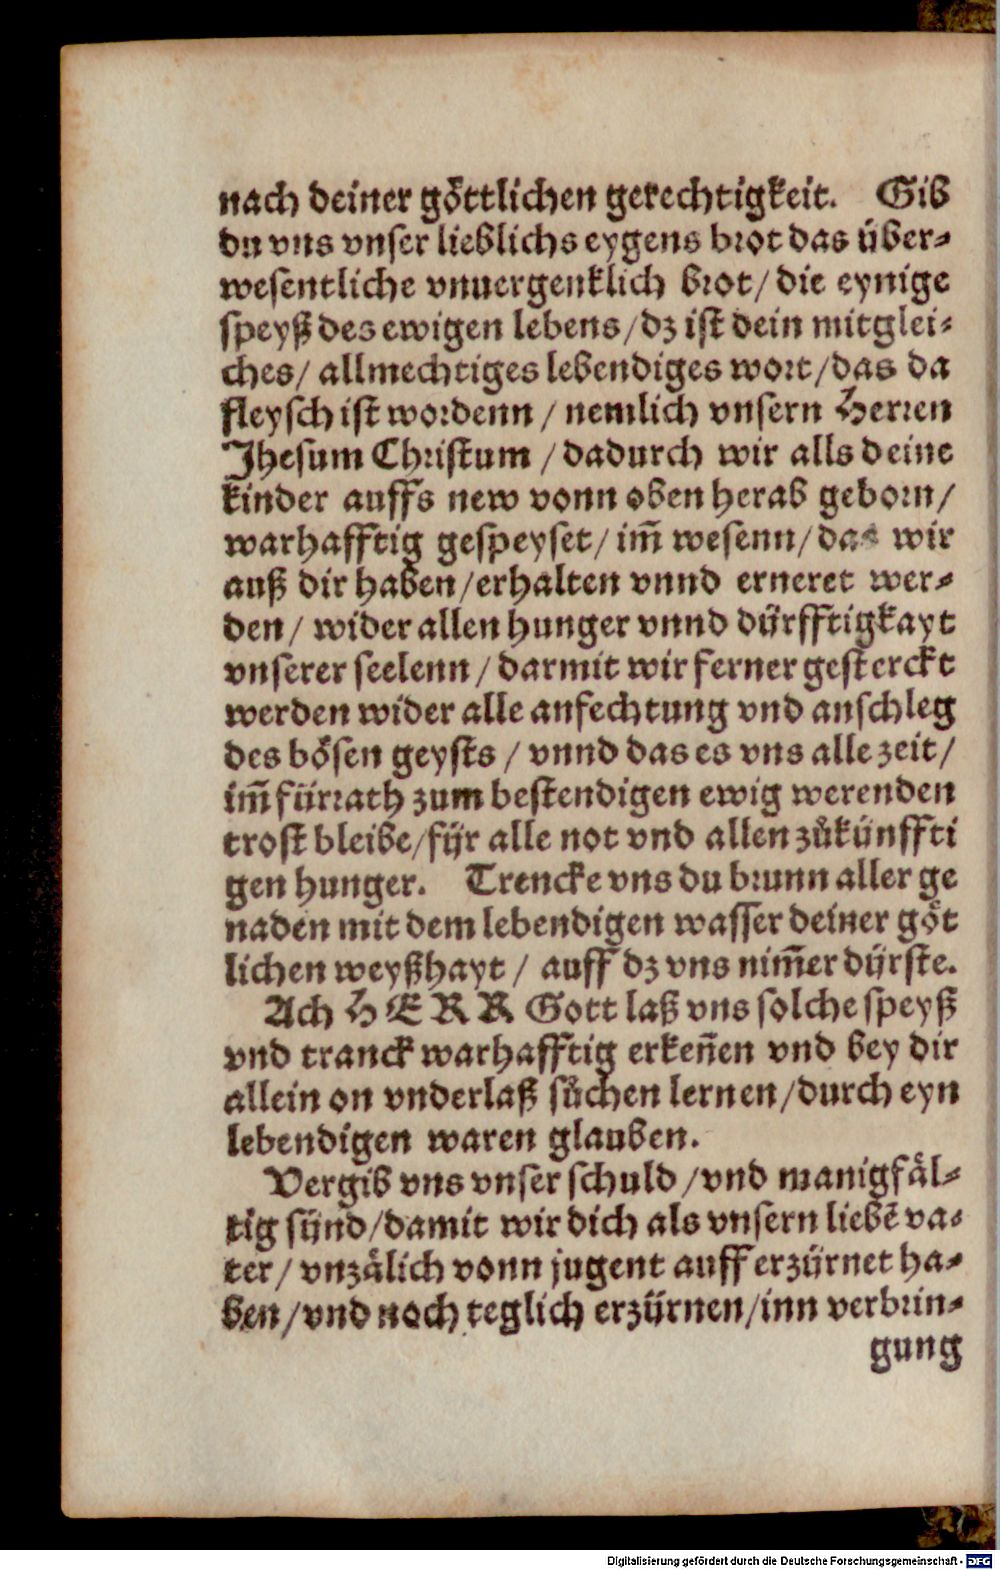 nach deiner göttlichen gerechtigkeit. Gib
du vns vnser lieblichs eygens brot das über-
wesentliche vnuergenklich brot/ die eynige
speyß des ewigen lebens/ dz ist dein mitglei-
ches/ allmechtiges lebendiges wort/ das da
fleysch ist wordenn/ nemlich vnsern Herren
Jhesum Christum/ dadurch wir alls deine
kinder auffs new vonn oben herab geborn/
warhafftig gespeyset/ im̄ wesenn/ das wir
auß dir haben/ erhalten vnnd erneret wer-
den/ wider allen hunger vnnd dürfftigkayt
vnserer seelenn/ darmit wir ferner gesterckt
werden wider alle anfechtung vnd anschleg
des bösen geysts/ vnnd das es vns alle zeit/
im̄ fürrath zum bestendigen ewig werenden
trost bleibe/ für alle not vnd allen zůkünffti
gen hunger. Trencke vns du brunn aller ge
naden mit dem lebendigen wasser deiner göt
lichen weyßhayt/ auff dz vns nim̄er dürste.
Ach HERR Gott laß vns solche speyß
vnd tranck warhafftig erken̄en vnd bey dir
allein on vnderlaß sůchen lernen/ durch eyn
lebendigen waren glauben.
Vergib vns vnser schuld/ vnd manigfäl-
tig sünd/ damit wir dich als vnsern liebē va-
ter/ vnzälich vonn jugent auff erzürnet ha-
ben/ vnd noch teglich erzürnen/ inn verbrin-
gung
Digitalisierung gefördert durch die Deutsche Forschungsgemeinschaft - DFG